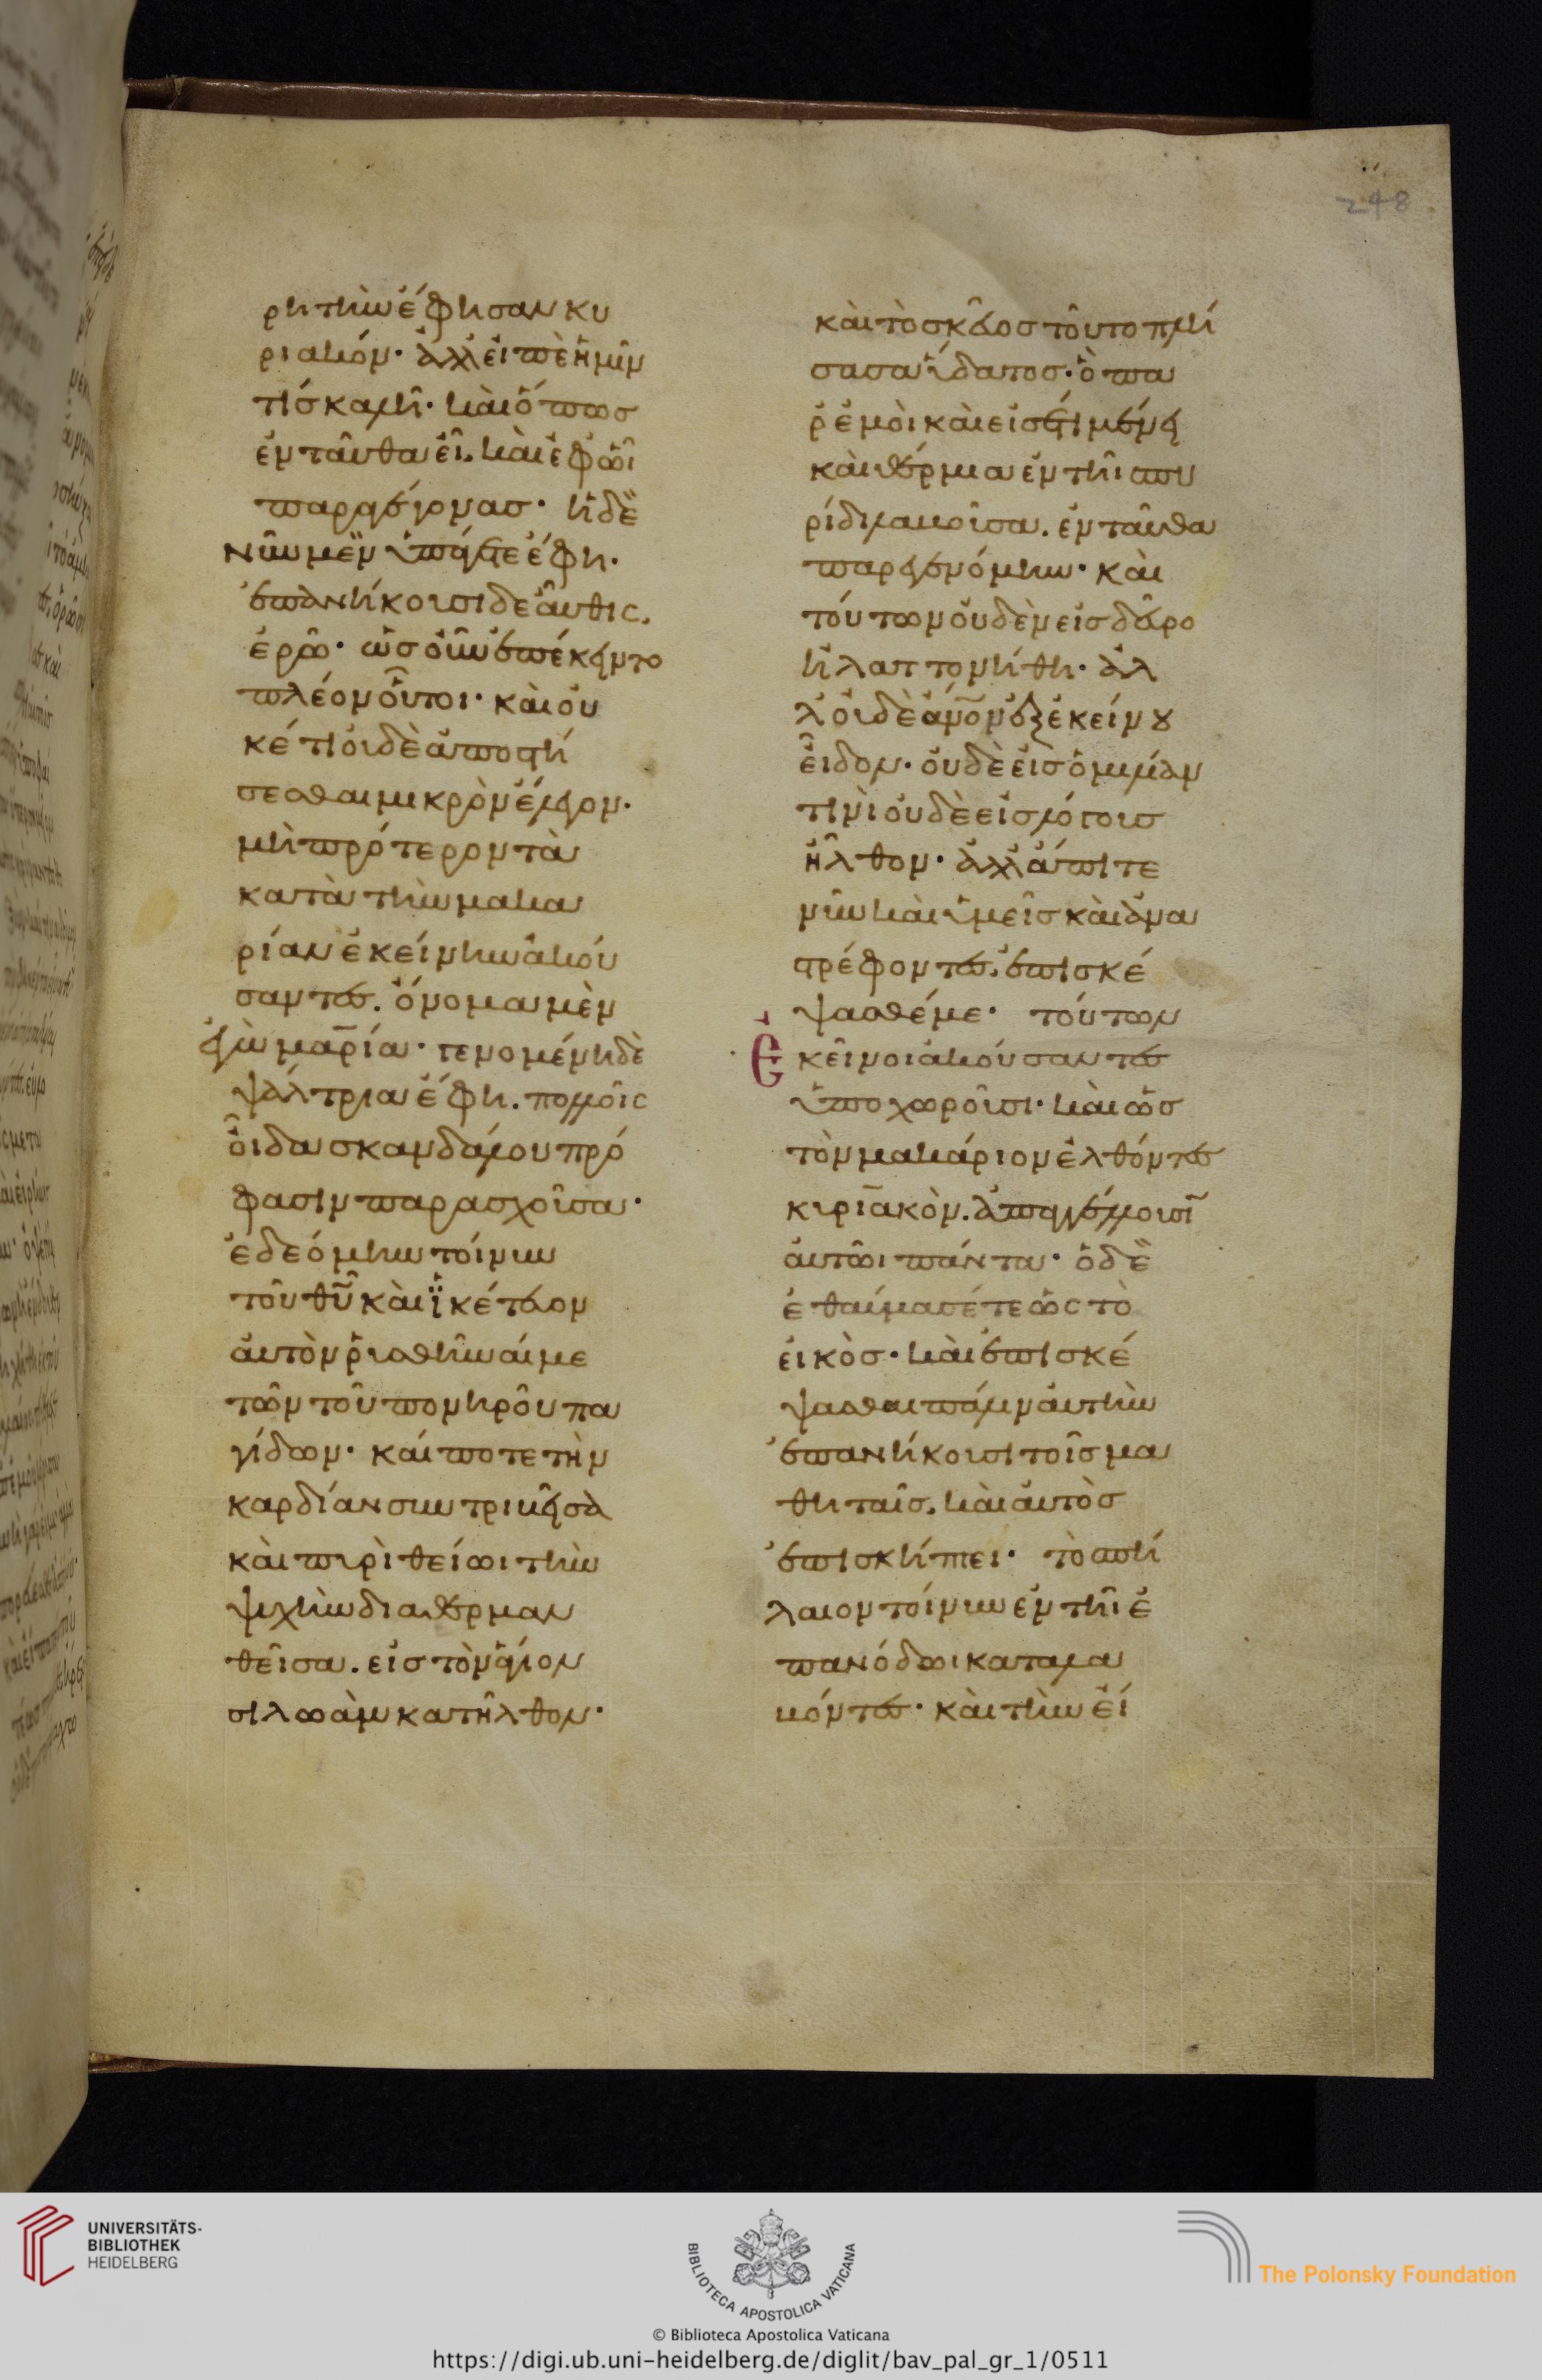 248
ρη τὴν ἔφησαν κυ
ριακόν· ἀλλ' εἰπὲ ἡμῖν
τίς καλῆ· καὶ ὅπως
ἐνταῦθα εἶ. καὶ ἐφ' ὧι
παραγέγονας· ἡ δὲ
νῦν μὲν ὑπάγετε ἔφη·
ἐπανήκουσι δὲ αὖθις.
ἐρῶ· ὡς οὖν ἐπέκειντο
πλέον οὗτοι· καὶ οὐ
κέτι οἱ δὲ ἀποστή
σεσθαι μικρὸν ἔλεγον·
μὴ πρότερον τὰ
κατὰ τὴν μακα
ρίαν ἐκείνην ἀκού
σαντες. ὄνομα μὲν
ἐγὼ μαρία· γενομένη δὲ
ψάλτρια ἔφη. πολλοῖς
οἶδα σκανδάλου πρό
φασιν παρασχοῦσα·
ἐδεόμην τοίνυν
τοῦ θῦ καὶ ἱκέτευον
αὐτὸν ῥυσθῆναί με
τῶν τοῦ πονηροῦ πα
γίδων· καί ποτε τὴν
καρδίαν συντριβεῖσα
καὶ πυρὶ θείωι τὴν
ψυχὴν διαθερμαν
θεῖσα. εἰς τὸν ἅγιον
σιλωὰμ κατῆλθον·
καὶ τὸ σκεῦος τοῦτο πλή
σασα ὕδατος· ὃ πα
ρ' ἐμοὶ καὶ εἰσέτι μένει
καὶ θέρμια ἐν τῆι σπυ
ρίδι λαβοῦσα. ἐνταῦθα
παρεγενόμην· καὶ
τούτων οὐδὲν εἰς δεῦρο
ἠλαττονήθη· ἀλ
λ' οὐδὲ ἄνον ἐξ ἐκείνου
εἶδον· οὐδὲ εἰς ὁμιλίαν
τινὶ οὐδὲ εἰς λόγους
ἦλθον· ἀλλ' ἄπιτε
νῦν καὶ ὑμεῖς καὶ ἀνα
στρέφοντες. ἐπισκέ
ψασθέ με· τούτων
Ἐκεῖνοι ἀκούσαντες
ὑποχωροῦσι· καὶ ὡς
τὸν μακάριον ἐλθόντες
κυριακὸν. ἀπαγγέλλουσι
αὐτῶι πάντα· ὁ δὲ
ἐθαύμασέ τε ὡς τὸ
εἰκὸς· καὶ ἐπισκέ
ψασθαι πάλιν αὐτὴν
ἐπανήκουσι τοῖς μα
θηταῖς. καὶ αὐτὸς
ἐπισκήπτει· τὸ σπή
λαιον τοίνυν ἐν τῆι ἐ
πανόδωι καταλα
βόντες· καὶ τὴν εἴ
UNIVERSITÄTS-
BIBLIOTHEK
HEIDELBERG
BIBLIOTECA APOSTOLICA VATICANA
© Biblioteca Apostolica Vaticana
The Polonsky Foundation
https://digi.ub.uni-heidelberg.de/diglit/bav_pal_gr_1/0511